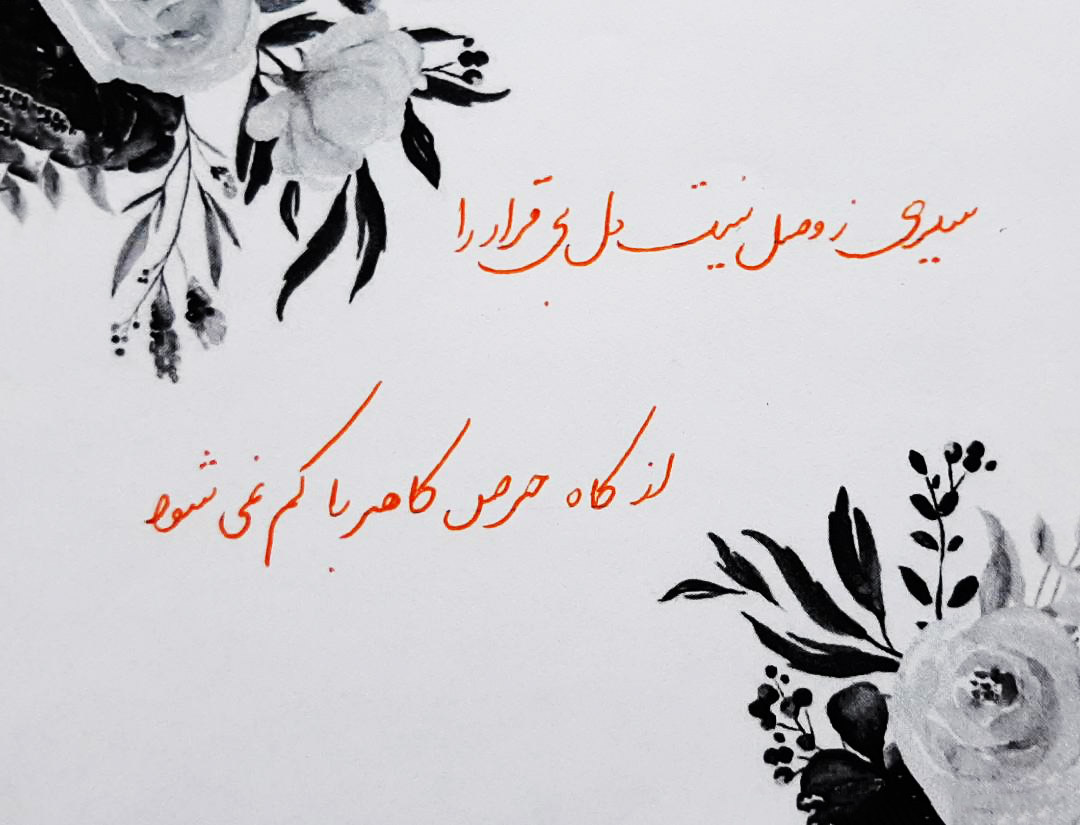 سیری ز وصل نیست دل بی قرار را
از کاه حرص کاهربا کم نمی شود